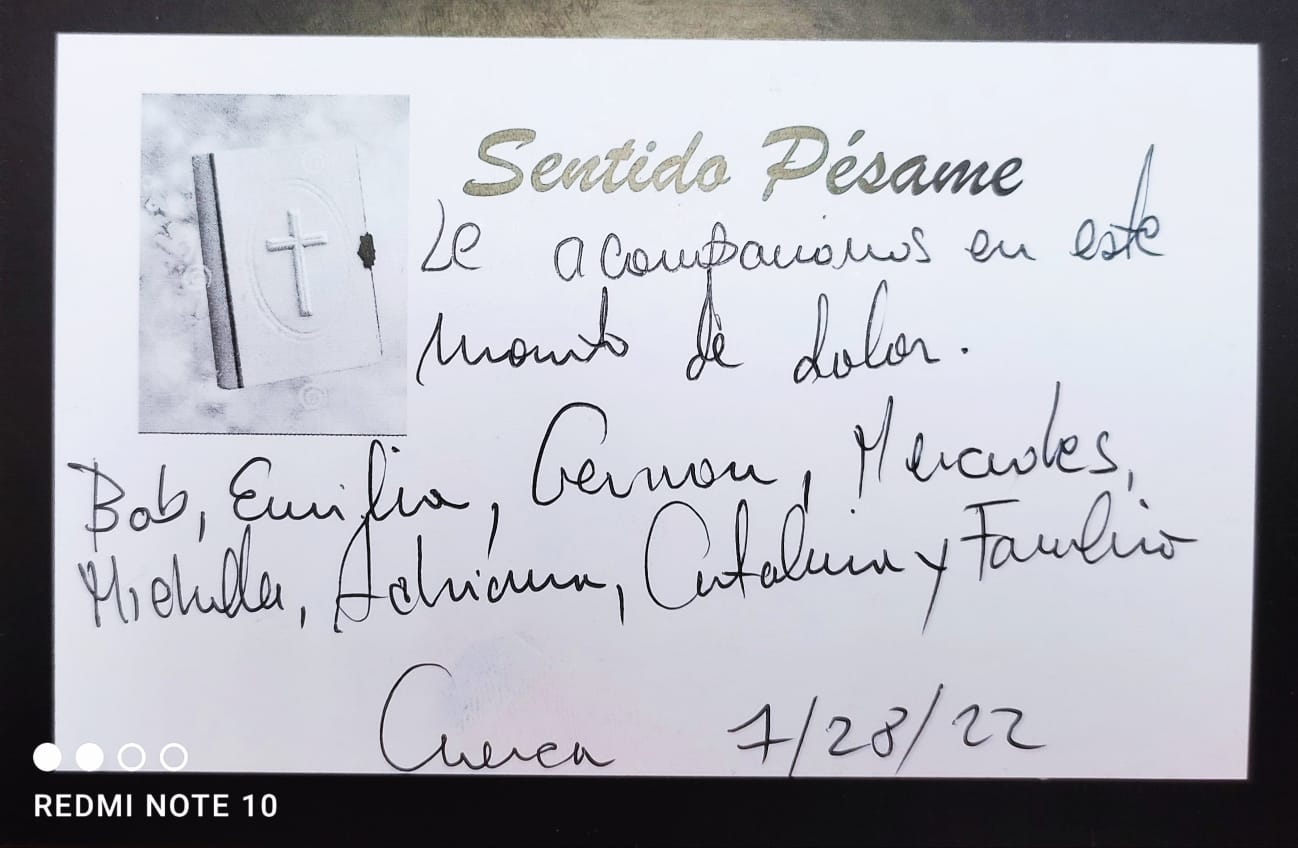 Sentido Pésame
Le acompañamos en este
momento de dolor.
Bob, Emilia, German, Mercedes,
Michelle, Adriana, Catalina y Familia
Cuenca 7/28/22
REDMI NOTE 10